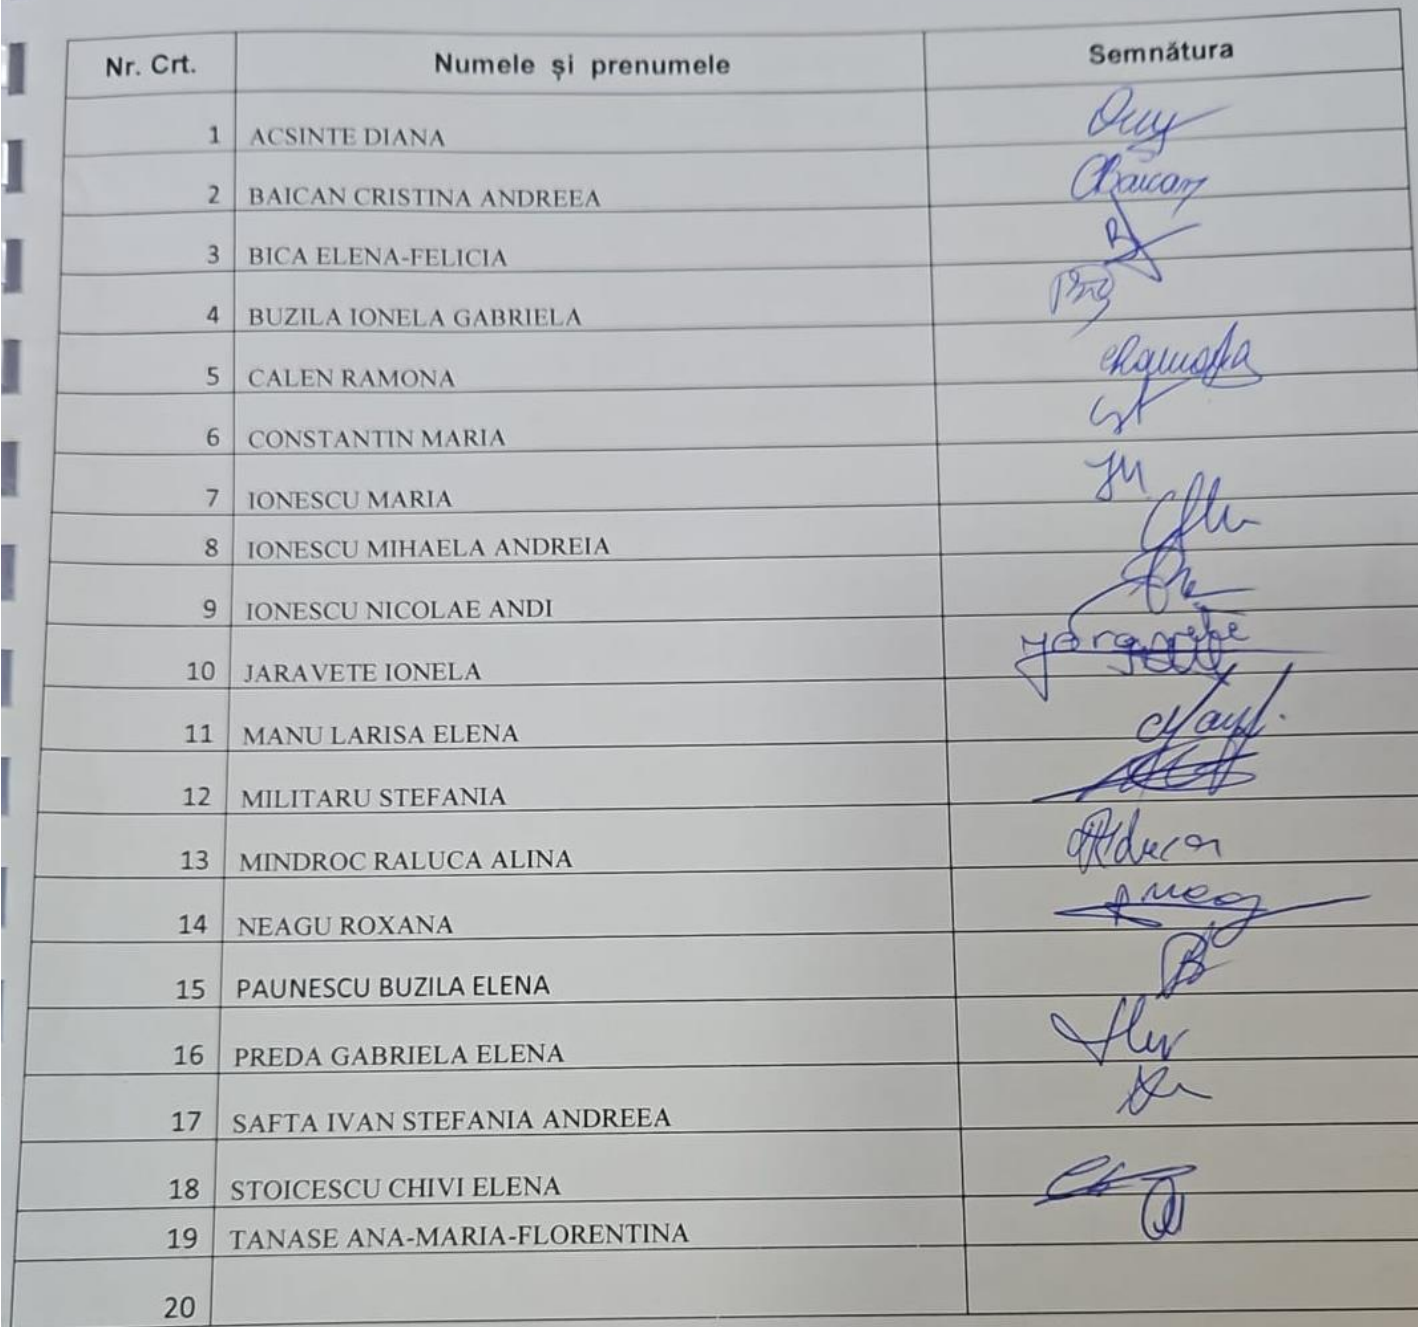 Nr. Crt. Numele și prenumele Semnătura
1 ACSINTE DIANA
2 BAICAN CRISTINA ANDREEA CBaican
3 BICA ELENA-FELICIA
4 BUZILA IONELA GABRIELA
5 CALEN RAMONA
6 CONSTANTIN MARIA
7 IONESCU MARIA
8 IONESCU MIHAELA ANDREIA
9 IONESCU NICOLAE ANDI
10 JARAVETE IONELA
11 MANU LARISA ELENA
12 MILITARU STEFANIA
13 MINDROC RALUCA ALINA
14 NEAGU ROXANA
15 PAUNESCU BUZILA ELENA
16 PREDA GABRIELA ELENA
17 SAFTA IVAN STEFANIA ANDREEA
18 STOICESCU CHIVI ELENA
19 TANASE ANA-MARIA-FLORENTINA
20